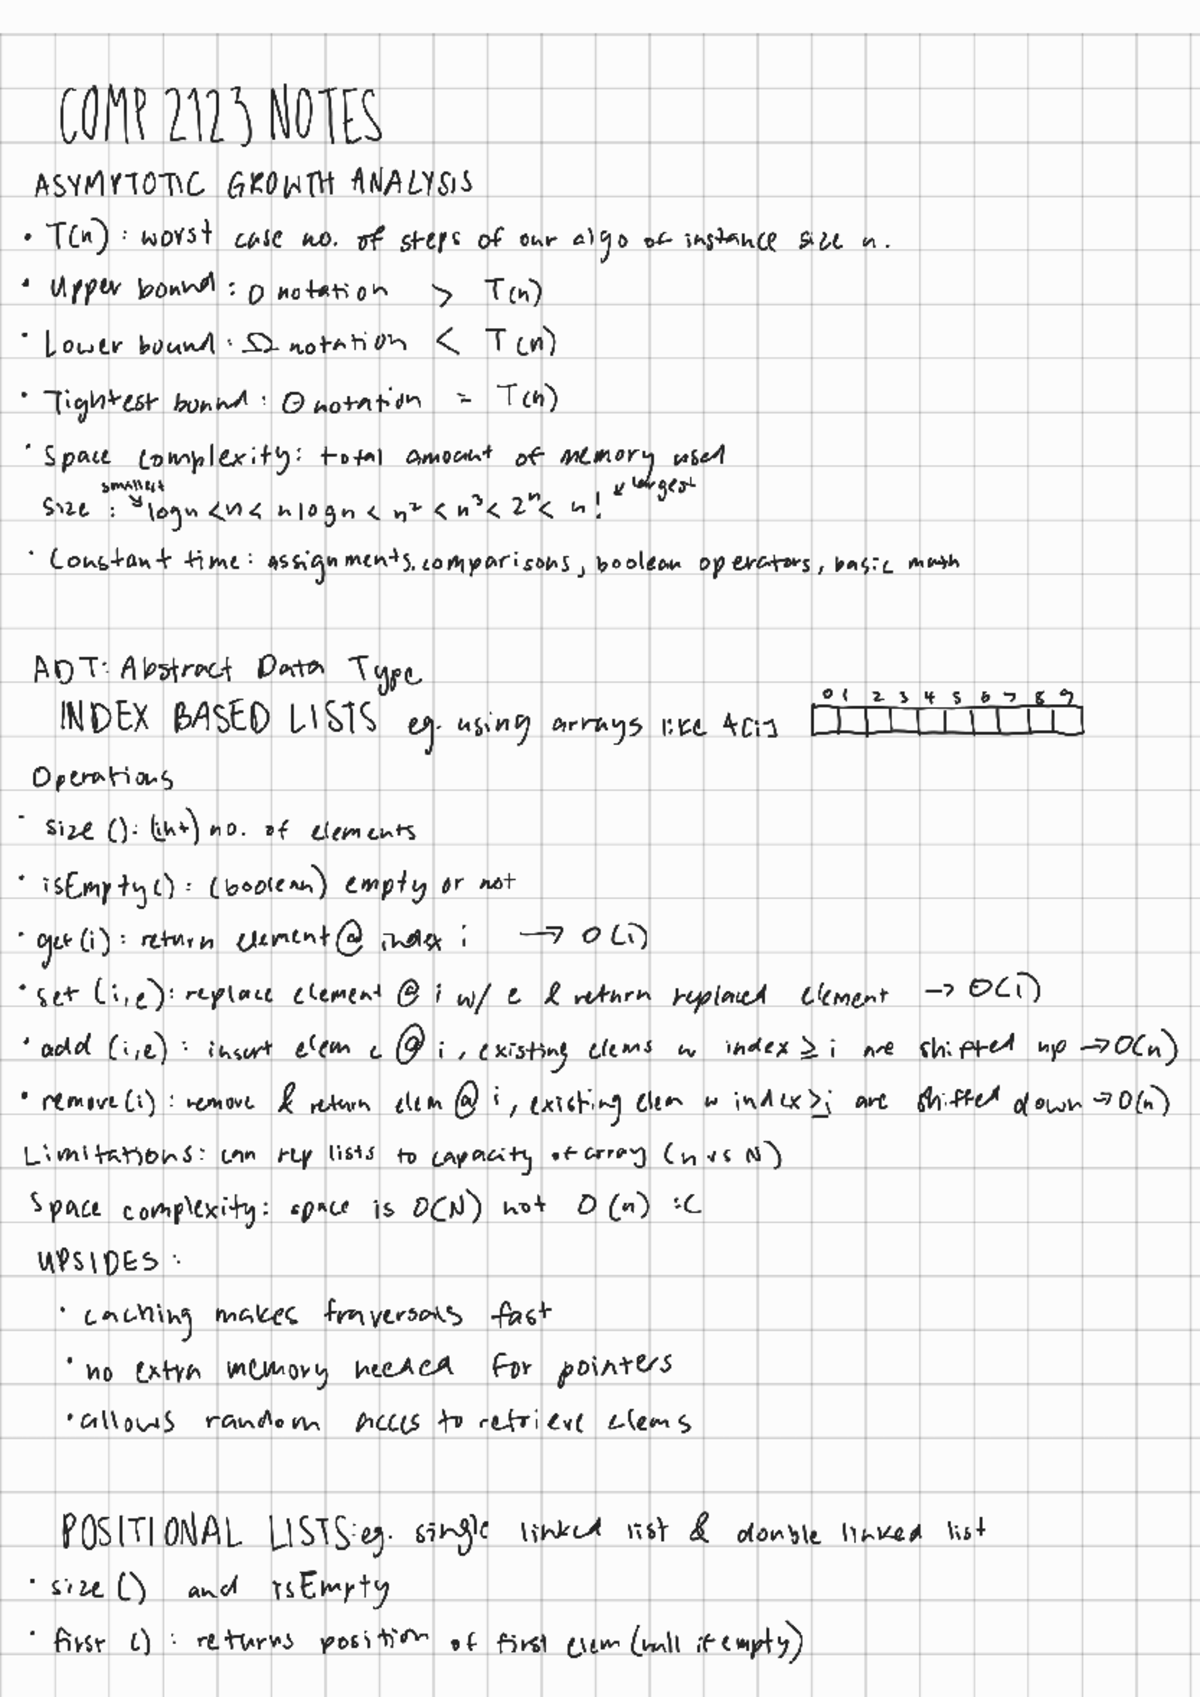 COMP 2123 NOTES
ASYMPTOTIC GROWTH ANALYSIS
• T(n) : worst case no. of steps of our algo of instance size n.
• Upper bound : O notation > T(n)
• Lower bound : Ω notation < T(n)
• Tightest bound : Θ notation = T(n)
• Space complexity: total amount of memory used
smallest ↘ ↙ largest
size : logn < n < n logn < n² < n³ < 2ⁿ < n!
• Constant time: assignments, comparisons, boolean operators, basic math
ADT: Abstract Data Type
0 1 2 3 4 5 6 7 8 9
INDEX BASED LISTS eg. using arrays like A[i]
Operations
• size (): (int) no. of elements
• isEmpty() : (boolean) empty or not
• get(i) : return element @ index i → O(1)
• set (i,e): replace element @ i w/ e & return replaced element → O(1)
• add (i,e) : insert elem e @ i, existing elems w index ≥ i are shifted up → O(n)
• remove(i) : remove & return elem @ i, existing elem w index ≥ i are shifted down → O(n)
Limitations: can rep lists to capacity of array (n vs N)
Space complexity: space is O(N) not O(n) :C
UPSIDES :
• caching makes traversals fast
• no extra memory needed for pointers
• allows random acces to retrieve elems
POSITIONAL LISTS: eg. single linked list & double linked list
• size () and isEmpty
• first () : returns position of first elem (null if empty)